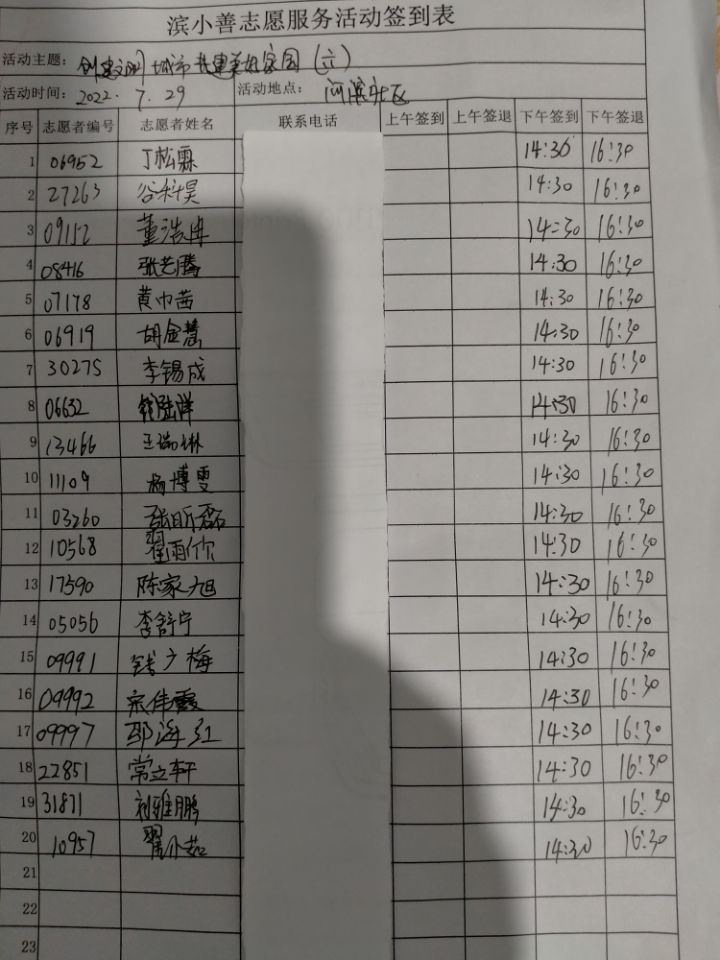 滨小善志愿服务活动签到表
活动主题： 创建文明城市 共建美好家园（六）
活动时间： 2022.7.29 活动地点： 河滨社区
序号 志愿者编号 志愿者姓名 联系电话 上午签到 上午签退 下午签到 下午签退
1 06952 丁松霖 14:30 16:30
2 27263 谷科昊 14:30 16:30
3 09112 董浩冉 14:30 16:30
4 08416 张艺腾 14:30 16:30
5 07178 黄巾茜 14:30 16:30
6 06919 胡金慧 14:30 16:30
7 30275 李锡成 14:30 16:30
8 06632 钱陆洋 14:30 16:30
9 13466 王瑞琳 14:30 16:30
10 11109 杨博雯 14:30 16:30
11 03260 张昕磊 14:30 16:30
12 10568 翟雨欣 14:30 16:30
13 17590 陈家旭 14:30 16:30
14 05056 李舒宁 14:30 16:30
15 09991 钱广梅 14:30 16:30
16 09992 宗伟霞 14:30 16:30
17 09997 邵海红 14:30 16:30
18 22851 常立轩 14:30 16:30
19 31871 刘雅鹏 14:30 16:30
20 10957 14:30 16:30
21
22
23